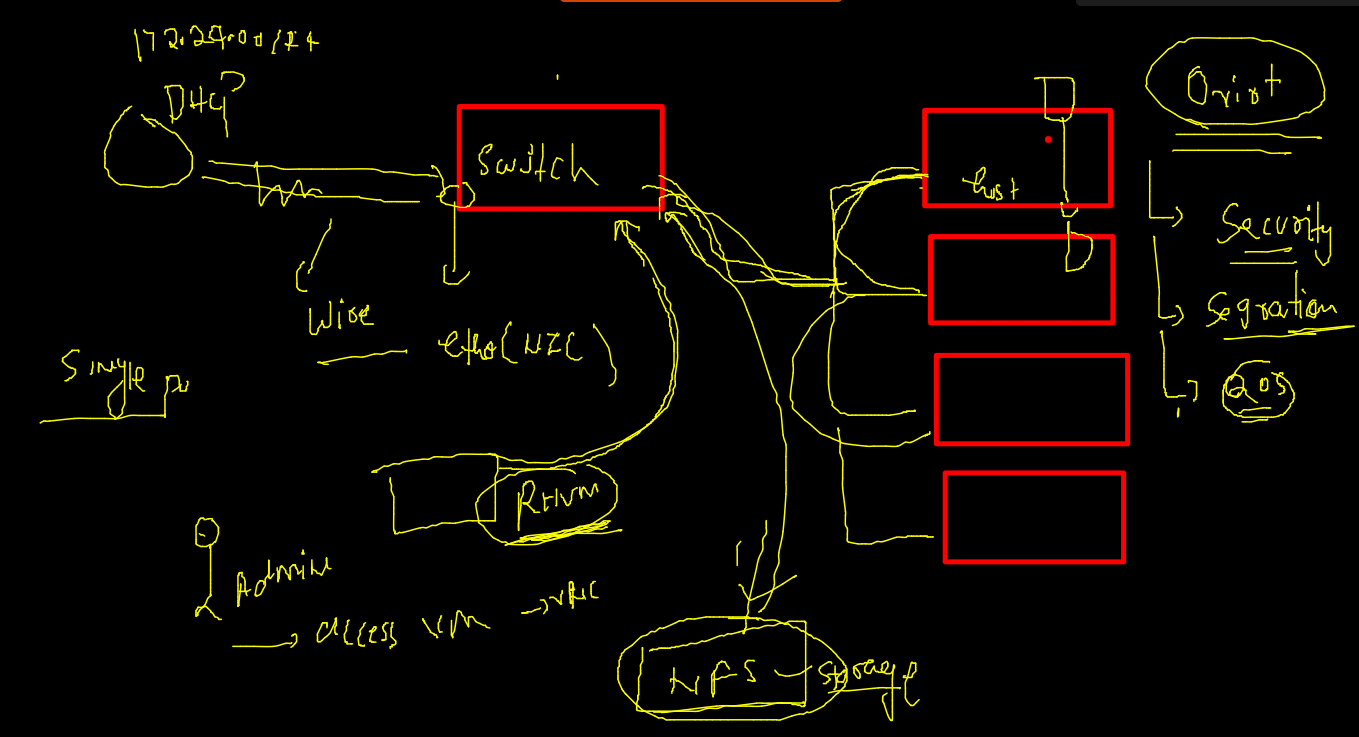 172.24.0.0/24
DHCP
Switch
host
Oviot
Security
Segration
QOS
Wire
eth0(NIC)
Single
RHVM
Admin
access VM → VNC
NFS - Storage